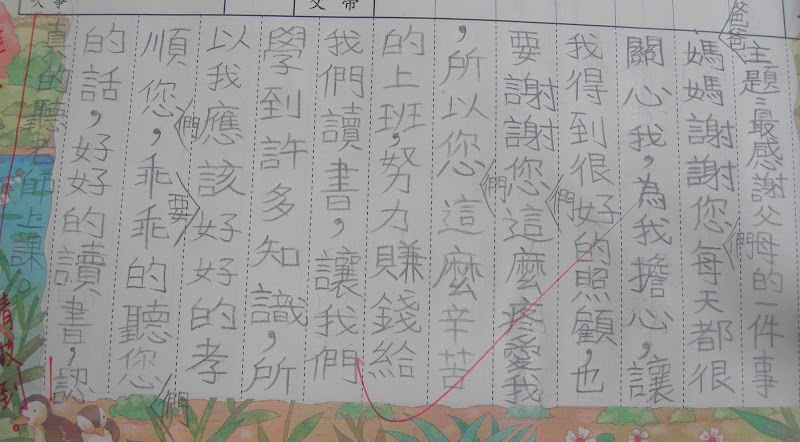 主題:最感謝父母的一件事
爸爸媽媽謝謝您們每天都很
關心我,為我擔心,讓
我得到很好的照顧,也
要謝謝您們這麼疼愛我
,所以您們這麼辛苦
的上班,努力賺錢給
我們讀書,讓我們
學到許多知識,所
以我應該要好好的孝
順您們,乖乖的聽您們
的話,好好的讀書,認
真的聽老師上課。